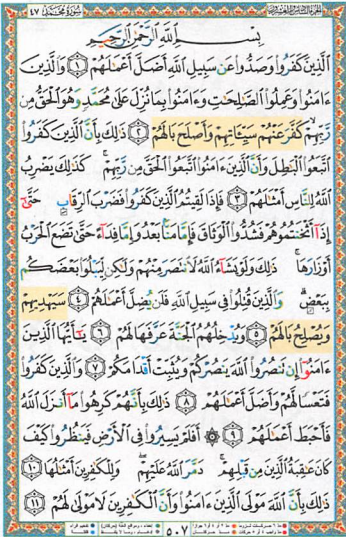 الجزء السادس والعشرون
سُورَةُ مُحَمَّدٍ ٤٧
بِسْمِ ٱللَّهِ ٱلرَّحْمَٰنِ ٱلرَّحِيمِ
ٱلَّذِينَ كَفَرُوا۟ وَصَدُّوا۟ عَن سَبِيلِ ٱللَّهِ أَضَلَّ أَعْمَٰلَهُمْ ١ وَٱلَّذِينَ
ءَامَنُوا۟ وَعَمِلُوا۟ ٱلصَّٰلِحَٰتِ وَءَامَنُوا۟ بِمَا نُزِّلَ عَلَىٰ مُحَمَّدٍ وَهُوَ ٱلْحَقُّ مِن
رَّبِّهِمْ كَفَّرَ عَنْهُمْ سَيِّـَٔاتِهِمْ وَأَصْلَحَ بَالَهُمْ ٢ ذَٰلِكَ بِأَنَّ ٱلَّذِينَ كَفَرُوا۟
ٱتَّبَعُوا۟ ٱلْبَٰطِلَ وَأَنَّ ٱلَّذِينَ ءَامَنُوا۟ ٱتَّبَعُوا۟ ٱلْحَقَّ مِن رَّبِّهِمْ ۚ كَذَٰلِكَ يَضْرِبُ
ٱللَّهُ لِلنَّاسِ أَمْثَٰلَهُمْ ٣ فَإِذَا لَقِيتُمُ ٱلَّذِينَ كَفَرُوا۟ فَضَرْبَ ٱلرِّقَابِ حَتَّىٰٓ
إِذَآ أَثْخَنتُمُوهُمْ فَشُدُّوا۟ ٱلْوَثَاقَ فَإِمَّا مَنًّۢا بَعْدُ وَإِمَّا فِدَآءً حَتَّىٰ تَضَعَ ٱلْحَرْبُ
أَوْزَارَهَا ۚ ذَٰلِكَ وَلَوْ يَشَآءُ ٱللَّهُ لَٱنتَصَرَ مِنْهُمْ وَلَٰكِن لِّيَبْلُوَا۟ بَعْضَكُم
بِبَعْضٍ ۗ وَٱلَّذِينَ قُتِلُوا۟ فِى سَبِيلِ ٱللَّهِ فَلَن يُضِلَّ أَعْمَٰلَهُمْ ٤ سَيَهْدِيهِمْ
وَيُصْلِحُ بَالَهُمْ ٥ وَيُدْخِلُهُمُ ٱلْجَنَّةَ عَرَّفَهَا لَهُمْ ٦ يَٰٓأَيُّهَا ٱلَّذِينَ
ءَامَنُوٓا۟ إِن تَنصُرُوا۟ ٱللَّهَ يَنصُرْكُمْ وَيُثَبِّتْ أَقْدَامَكُمْ ٧ وَٱلَّذِينَ كَفَرُوا۟
فَتَعْسًا لَّهُمْ وَأَضَلَّ أَعْمَٰلَهُمْ ٨ ذَٰلِكَ بِأَنَّهُمْ كَرِهُوا۟ مَآ أَنزَلَ ٱللَّهُ
فَأَحْبَطَ أَعْمَٰلَهُمْ ٩ ۞ أَفَلَمْ يَسِيرُوا۟ فِى ٱلْأَرْضِ فَيَنظُرُوا۟ كَيْفَ
كَانَ عَٰقِبَةُ ٱلَّذِينَ مِن قَبْلِهِمْ ۚ دَمَّرَ ٱللَّهُ عَلَيْهِمْ ۖ وَلِلْكَٰفِرِينَ أَمْثَٰلُهَا ١٠
ذَٰلِكَ بِأَنَّ ٱللَّهَ مَوْلَى ٱلَّذِينَ ءَامَنُوا۟ وَأَنَّ ٱلْكَٰفِرِينَ لَا مَوْلَىٰ لَهُمْ ١١
٥٠٧